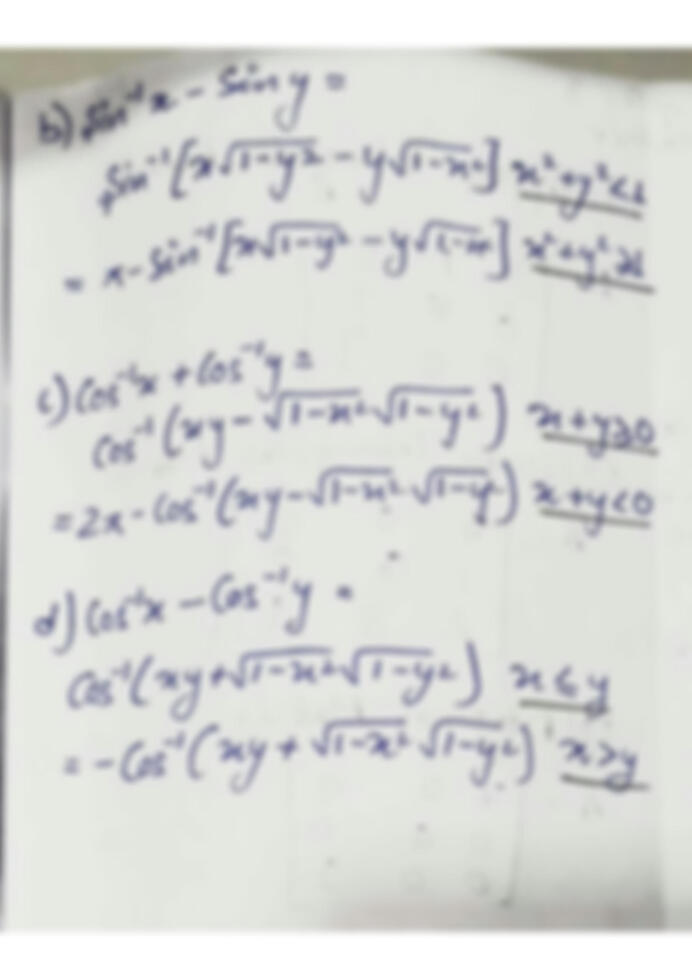 b) Sin⁻¹x - Sin⁻¹y =
Sin⁻¹[x√1-y² - y√1-x²] x²+y²<1
= π - Sin⁻¹[x√1-y² - y√1-x] x²+y²≥1
c) Cos⁻¹x + Cos⁻¹y =
Cos⁻¹(xy - √1-x² √1-y²) x+y≥0
= 2π - Cos⁻¹(xy - √1-x² √1-y²) x+y<0
d) Cos⁻¹x - Cos⁻¹y =
Cos⁻¹(xy + √1-x² √1-y²) x≤y
= - Cos⁻¹(xy + √1-x² √1-y²) x>y